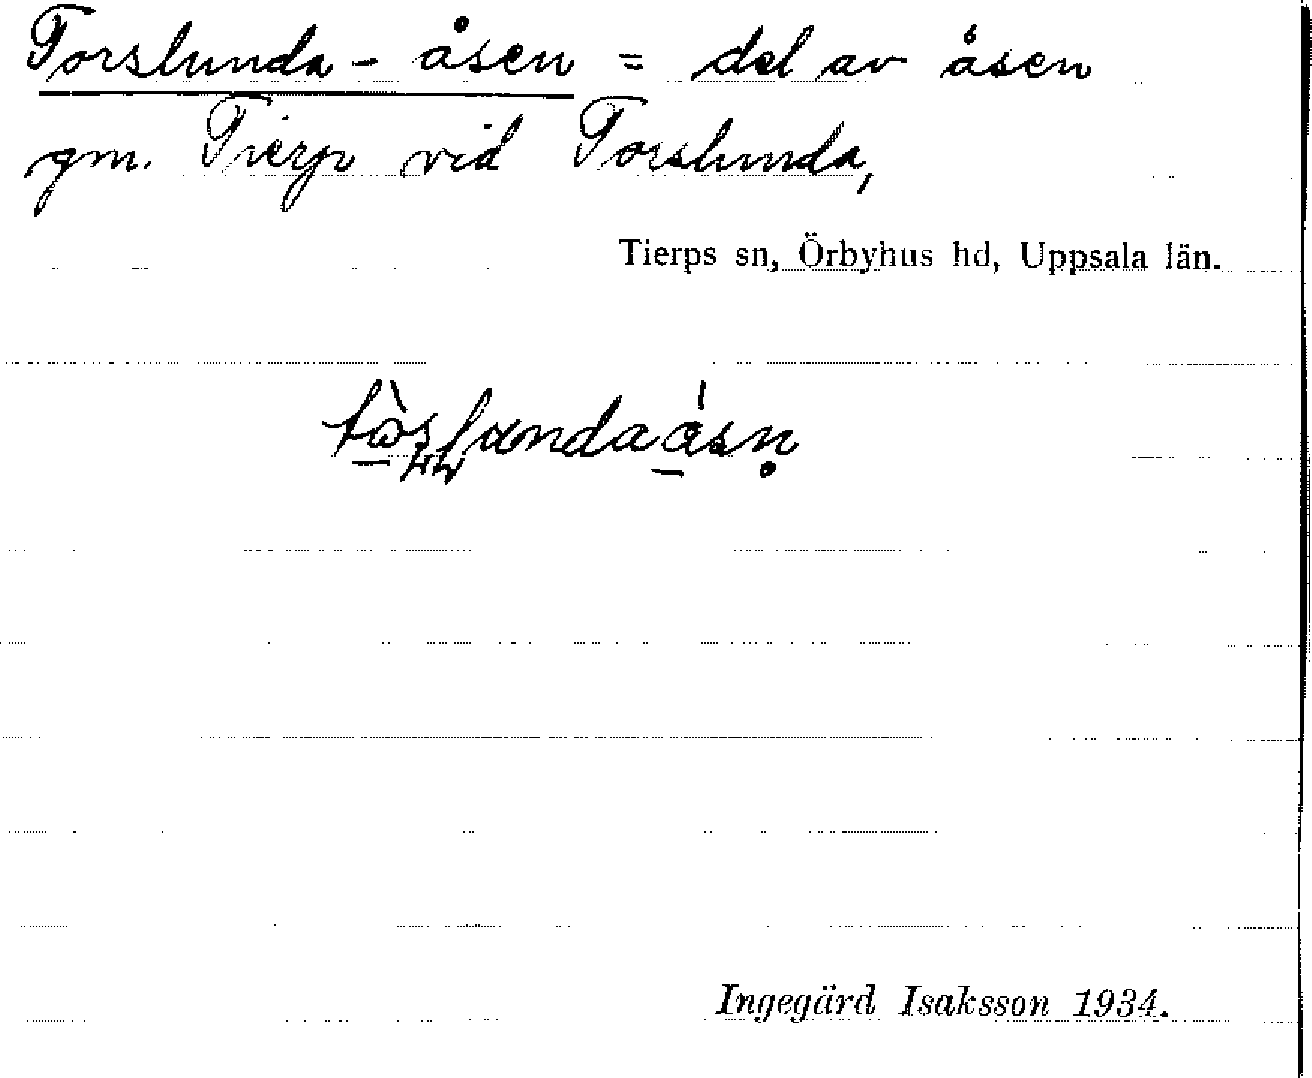 Torslunda-åsen = del av åsen
gm. Tierp vid Torslunda,
Tierps sn, Örbyhus hd, Uppsala län.
Ingegärd Isaksson 1934.